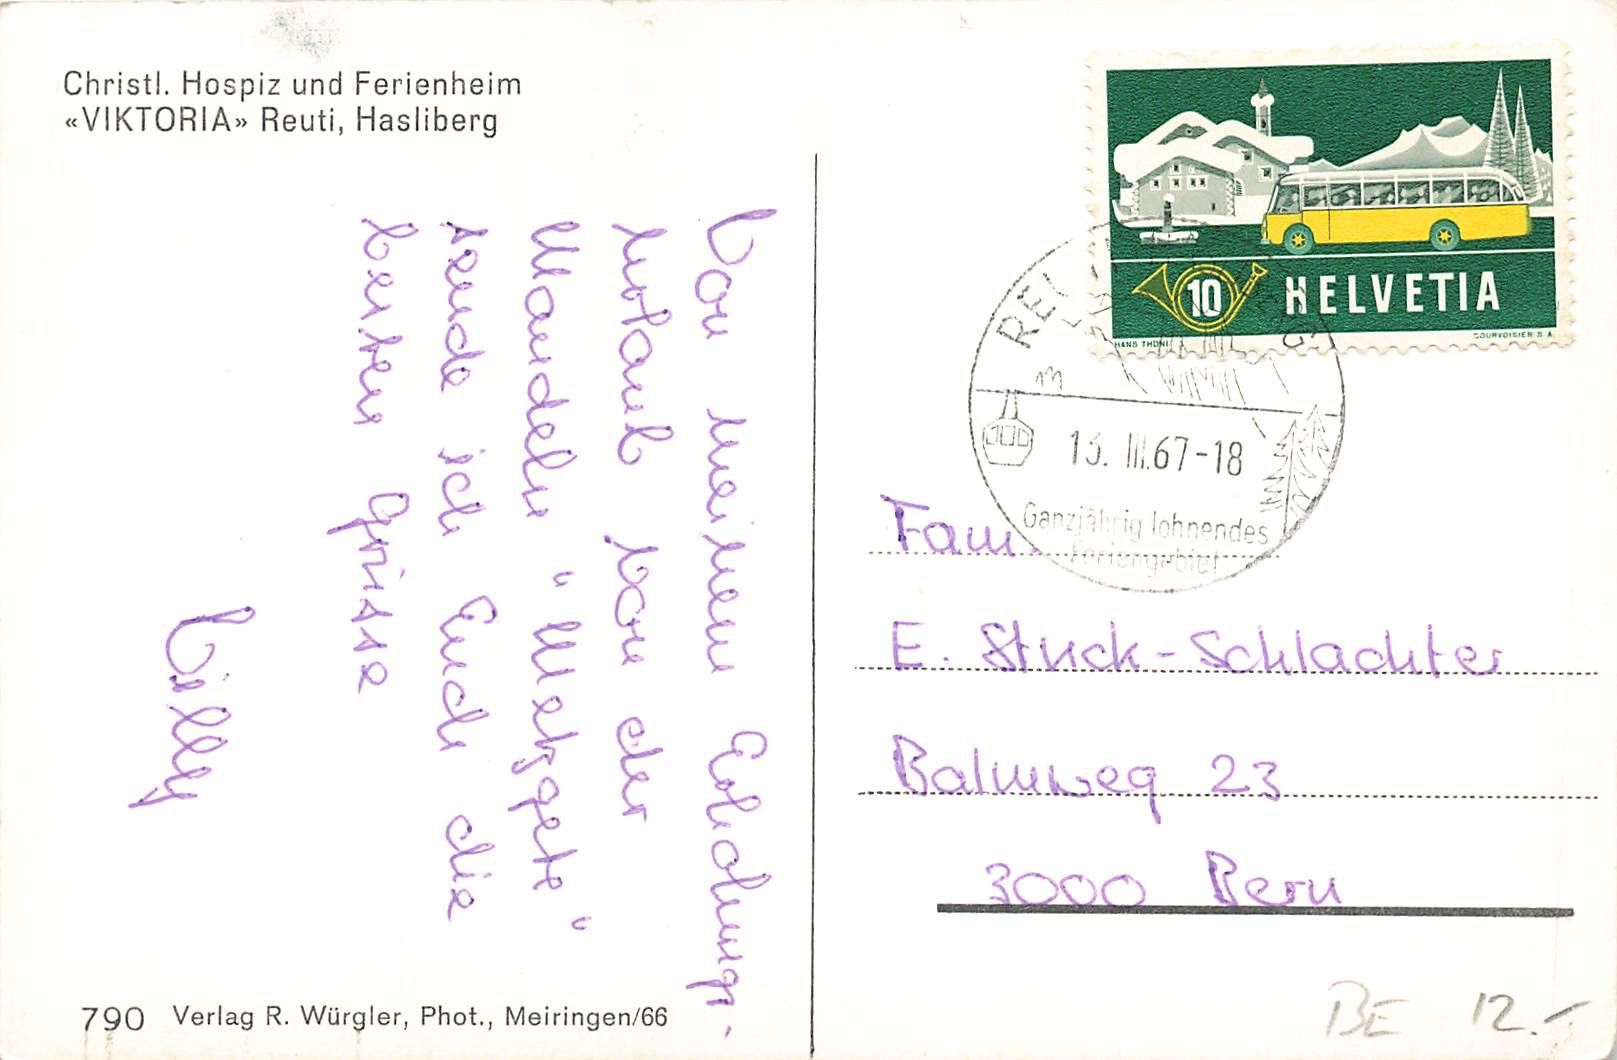 Christl. Hospiz und Ferienheim
«VIKTORIA» Reuti, Hasliberg
Von meinem Erholungs-
urlaub von der
Mandeln "Metzgete"
sende ich Euch die
besten Grüsse
Willy
790 Verlag R. Würgler, Phot., Meiringen/66
10 HELVETIA
HANS THÖNI
COURVOISIER S.A.
13. III. 67-18
Ganzjährig lohnendes
Feriengebiet
Fam.
E. Stuck-Schlachter
Balmweg 23
3000 Bern
BE 12.-